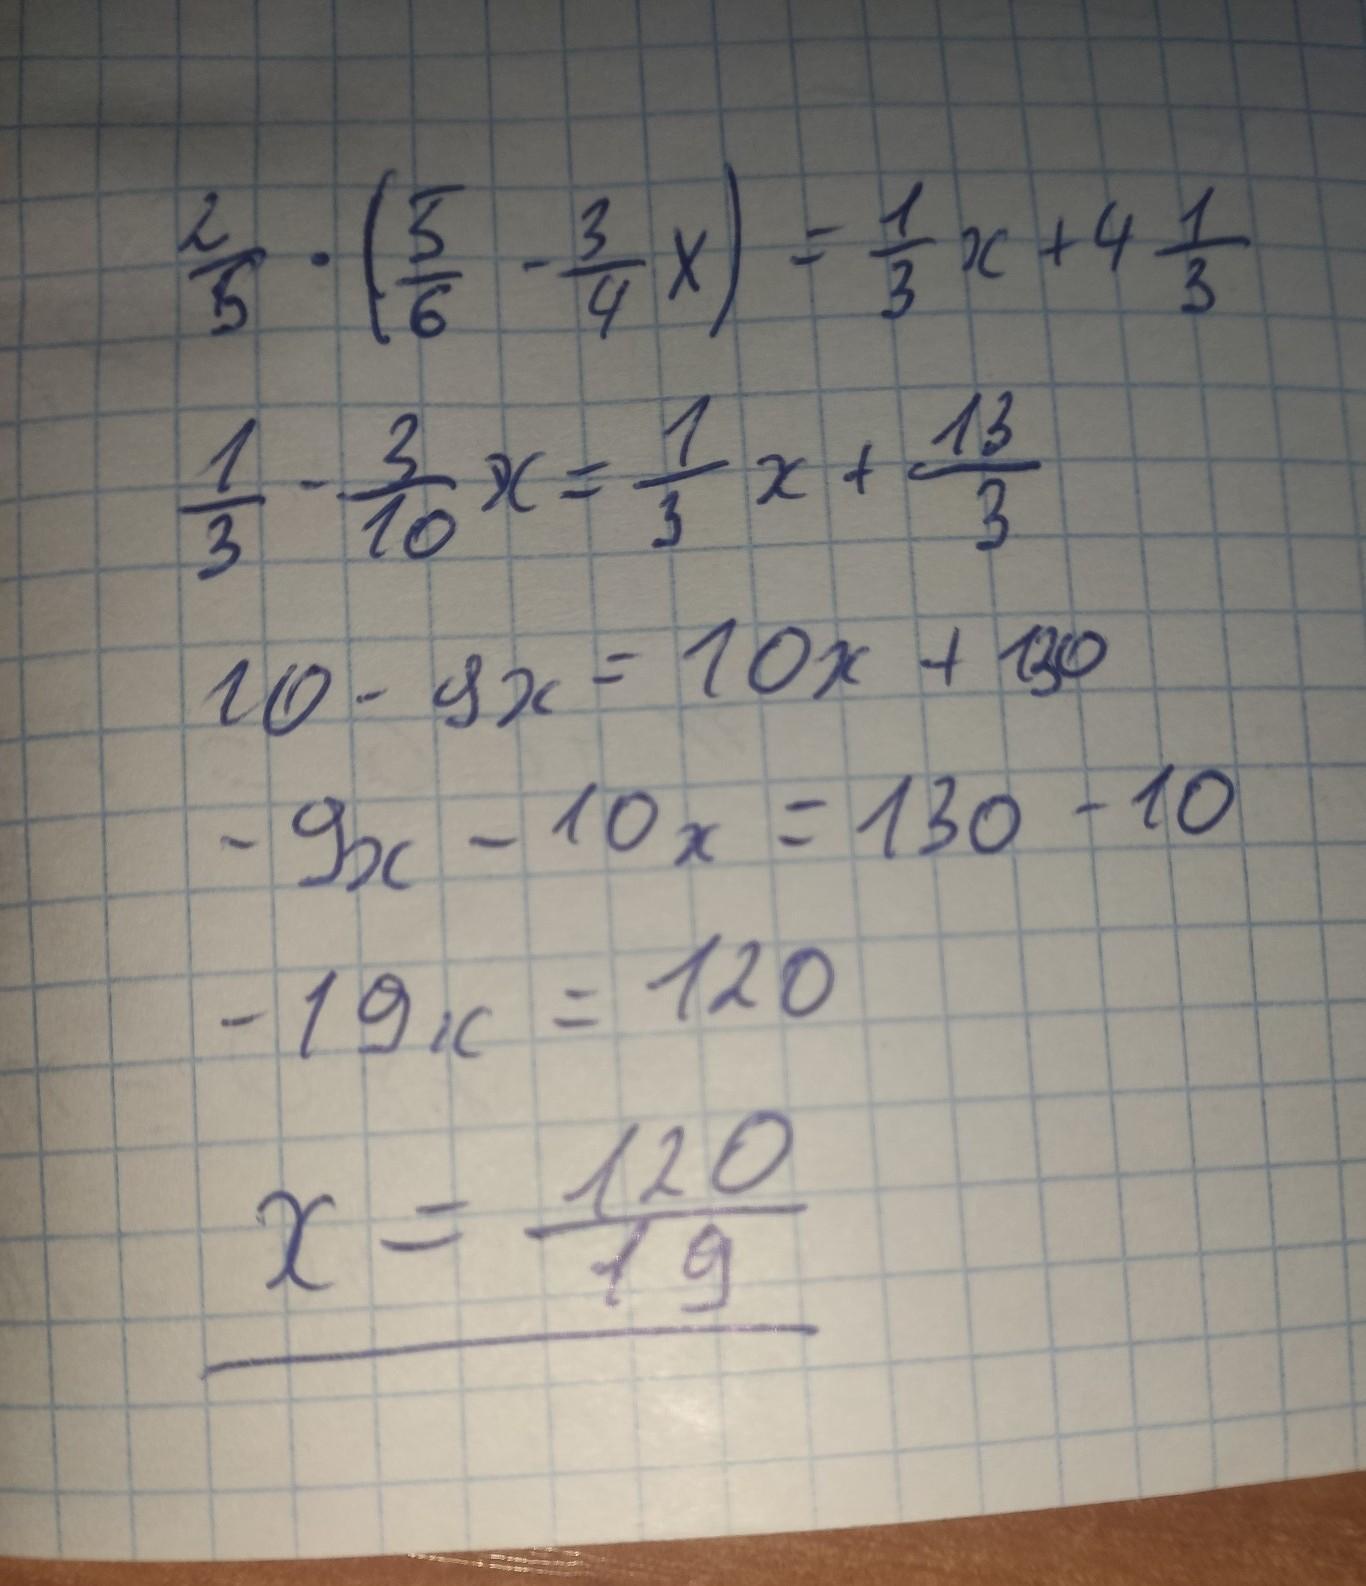 2/5 · (5/6 - 3/4 x) = 1/3 x + 4 1/3
1/3 - 3/10 x = 1/3 x + 13/3
10 - 9x = 10x + 130
- 9x - 10x = 130 - 10
- 19x = 120
x = 120/19